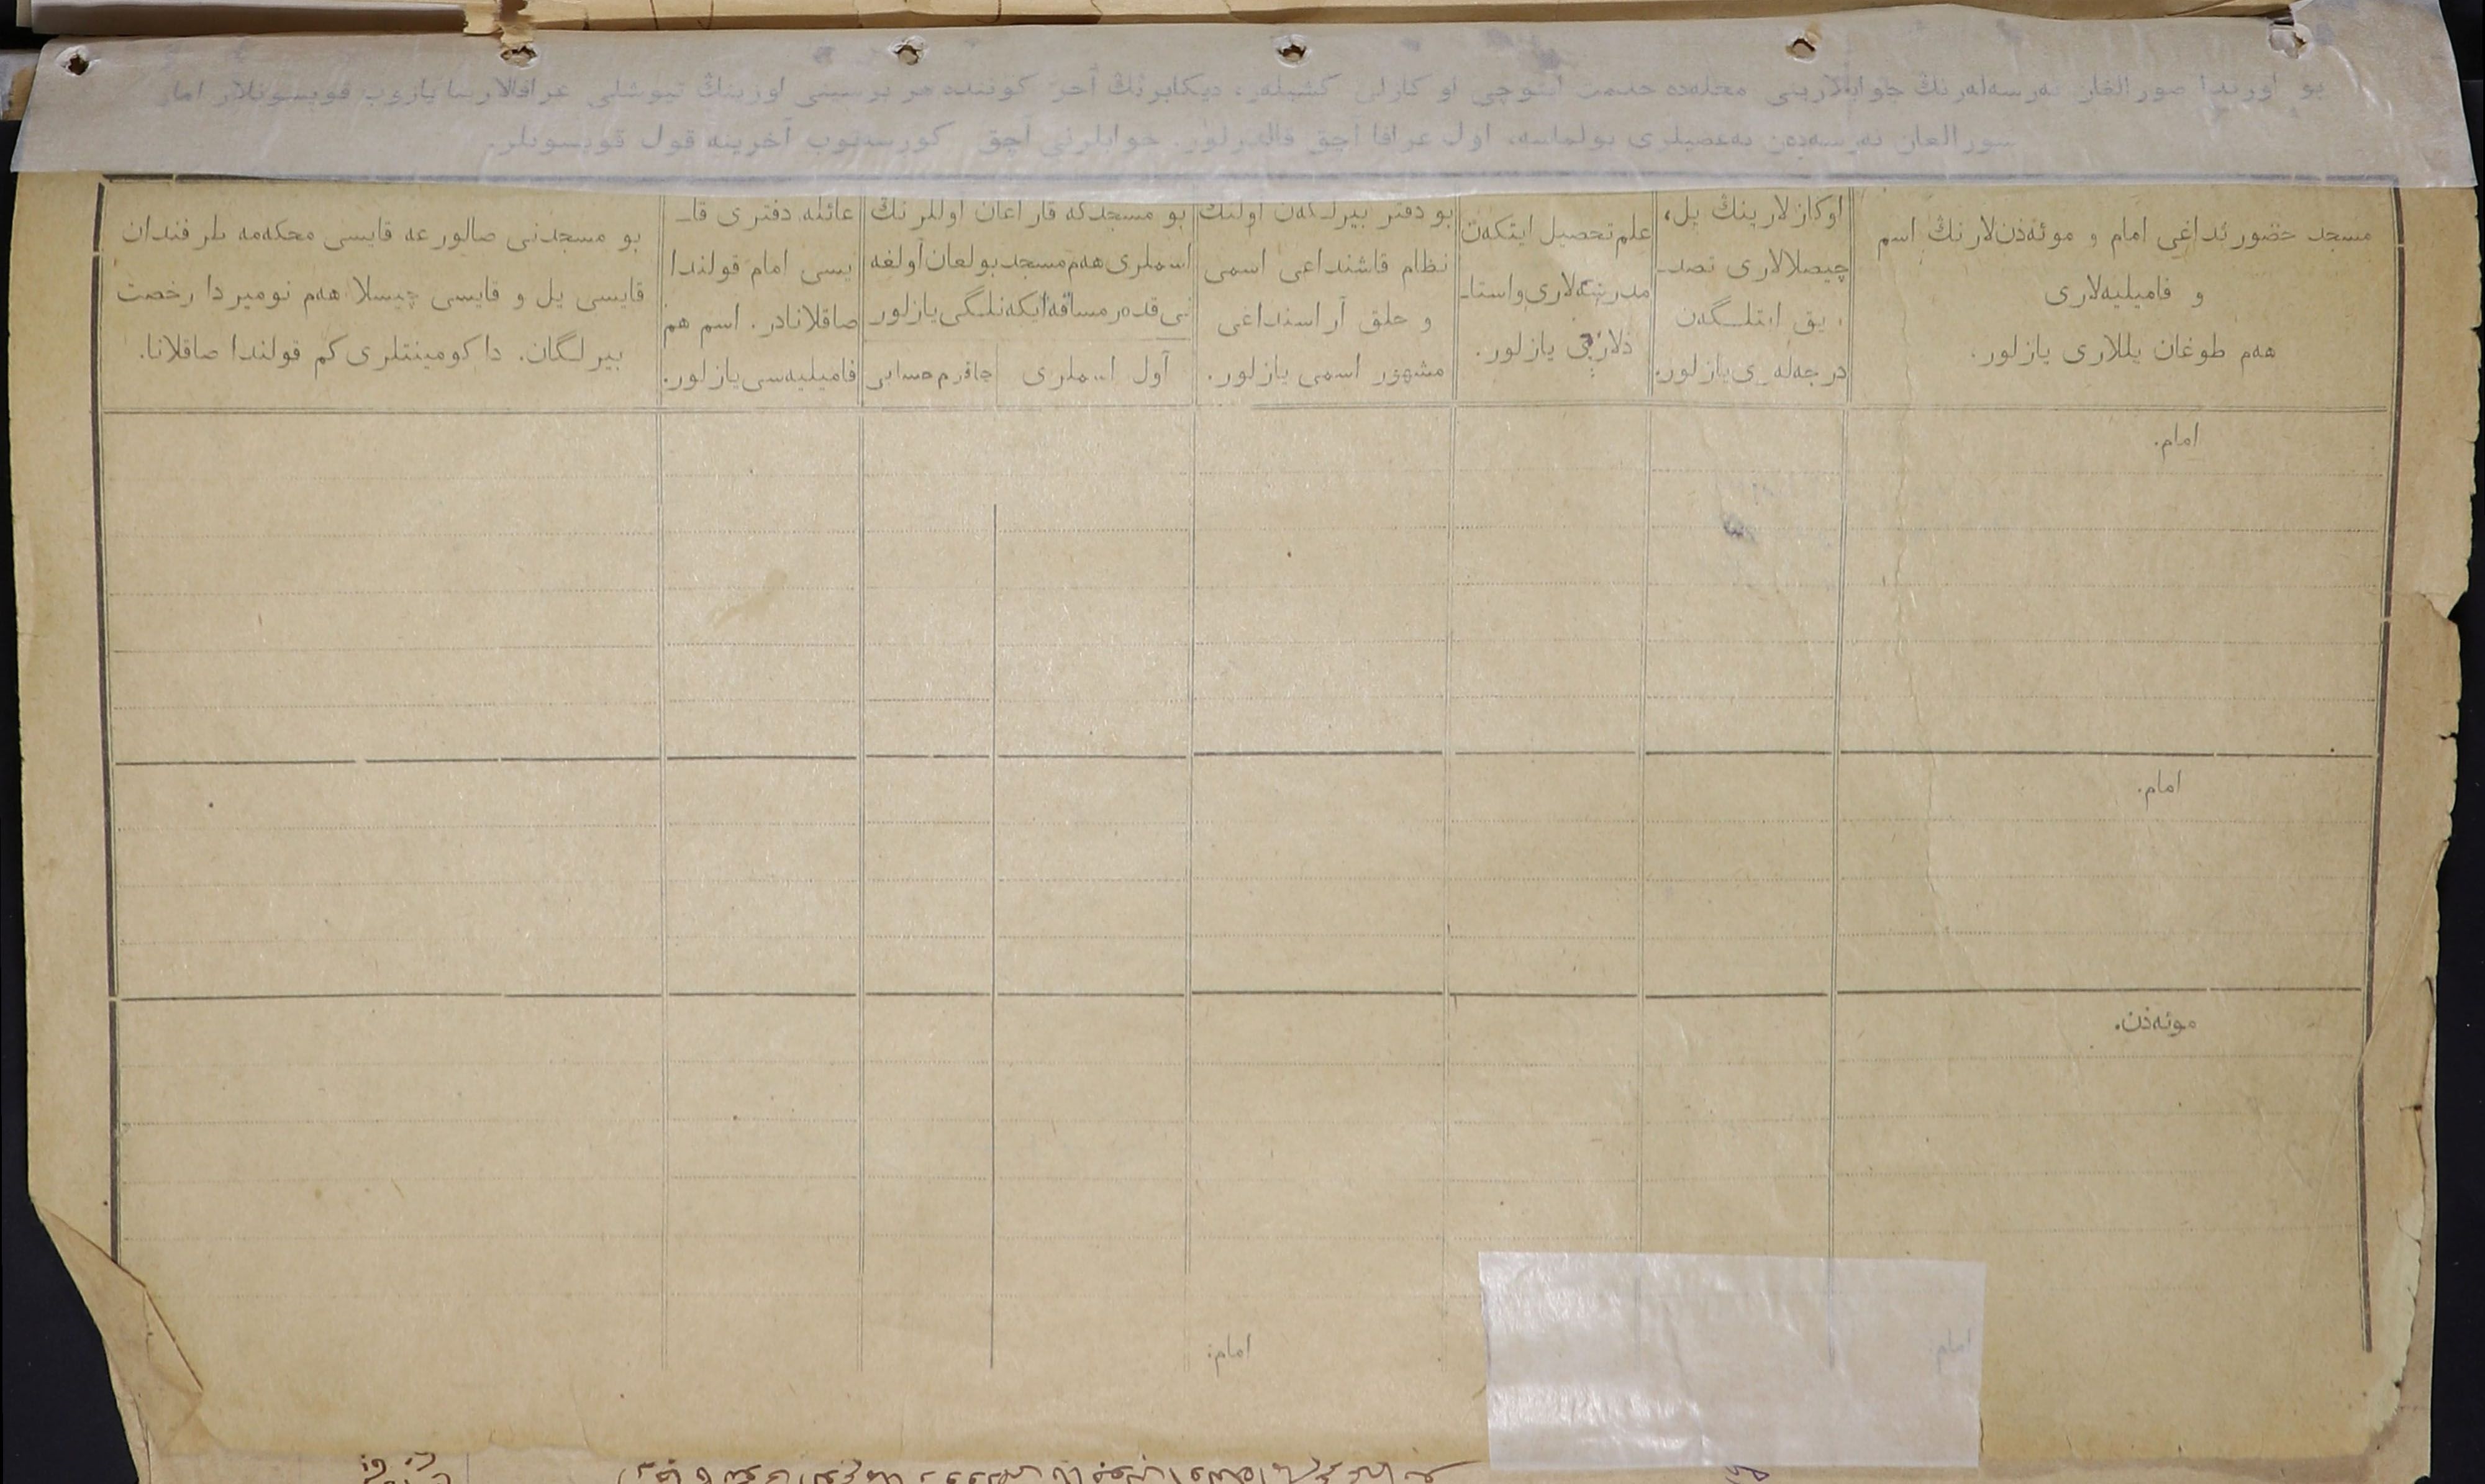 بو اورندا صورالغان نەرسەلەرنڭ جوابلارینی محلەدە خدمت ایتوچی اوکازلی کشیلەر، دیکابرنڭ آخر کونندە هر برسینی اوزینڭ تیوشلی عرافالارینا یازوب قویسونلار اما
صورالغان نەرسەدەن بەعضیلری بولماسە، اول عرافا آچق قالدرلور. جوابلرنی آچق کورسەتوب آخرینە قول قویسونلر.
مسجد حضورنداغی امام و موئەذن‌لارنڭ اسم
و فامیلیەلاری
هەم طوغان یللاری یازلور.
اوکازلارینڭ یل،
چیصلالاری تصد‌ـ
یق ایتلـگەن
درجەلەری یازلور.
علم تحصیل ایتکەن
مدرسەلاری و استا‌ـ
ذلاری یازلور.
بو دفتر بیرلـگەن اولنڭ
نظام قاشنداغی اسمی
و خلق آراسنداغی
مشهور اسمی یازلور.
بو مسجدکە قاراغان آوللرنڭ
اسملری هەم مسجد بولغان آولغە
نی قدەر مسافە ایکەنلـگی یازلور
آول اسملری
چاقرم حسابی
عائلە دفتری قا‌ـ
یسی امام قولندا
صاقلانادر. اسم هم
فامیلیەسی یازلور.
بو مسجدنی صالورغە قایسی محکەمە طرفندان
قایسی یل و قایسی چیسلا هەم نومیردا رخصت
بیرلـگان. داکومینتلری کم قولندا صاقلانا.
امام.
امام.
موئەذن.
امام:
امام: